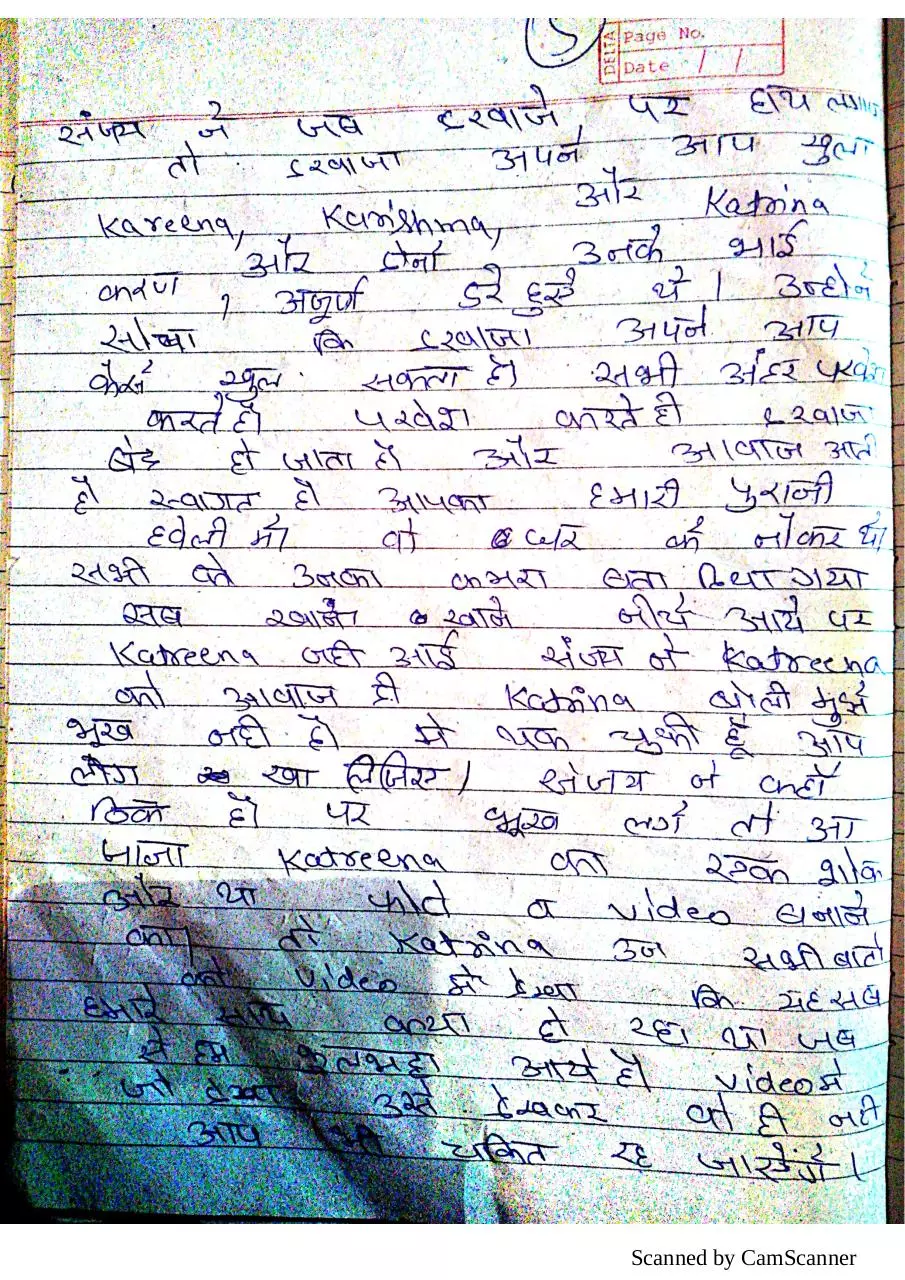 5
DELTA
Page No.
Date / /
संजय ने जब दरवाजे पर हाथ लगाया
तो दरवाजा अपने आप खुला
Kareena, Karishma, और Katrina
और दोनों उनके भाई
करण , अर्जुण डरे हुऐ थे । उन्होने
सोचा कि दरवाजा अपने आप
कैसे खुल सकता है। सभी अंदर परवेश
करते है। परवेश करते ही दरवाज
बंद हो जाता है और आवाज आती
है स्वागत है आपका हमारी पुरानी
हवेली में। वो घर के नौकर थे।
सभी को उनका कमरा बता दिया गया
सब खाना खाने नीचे आये पर
Katreena नही आई संजय ने Katreena
को आवाज दी Katrina बोली मुझे
भूख नही है। मे थक चुकी हूँ आप
लोग खा लिजिए। संजय ने कहाँ
ठिक है पर भूख लगे तो आ
जाना Katreena का एक शोक
और था फोटो व video बनाने
का। तो Katrina उन सभी बातो
को video मे देखा कि यह सब
हमारे साथ क्या हो रहा था जब
से हम आये है। video मे
जो देखा उसे देखकर वो ही नही
आप भी चकित रह जाएंगे।
Scanned by CamScanner